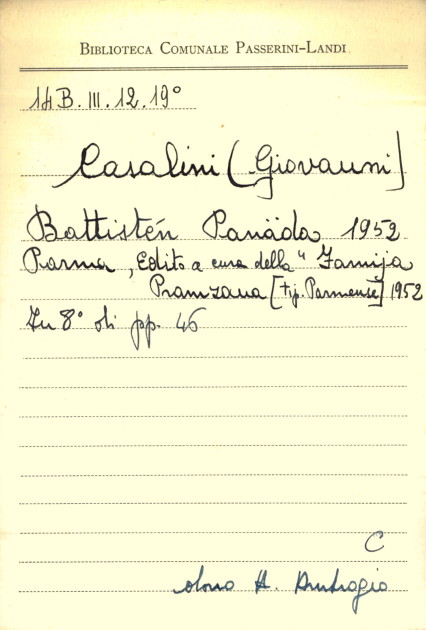 BIBLIOTECA COMUNALE PASSERINI-LANDI
14 B. III. 12. 19°
Casalini (Giovanni)
Battistén Panäda 1952
Parma, Edito a cura della "Famija
Pramzana [tip. Parmense] 1952
In 8° di pp. 46
C
dono A. Ambrogio